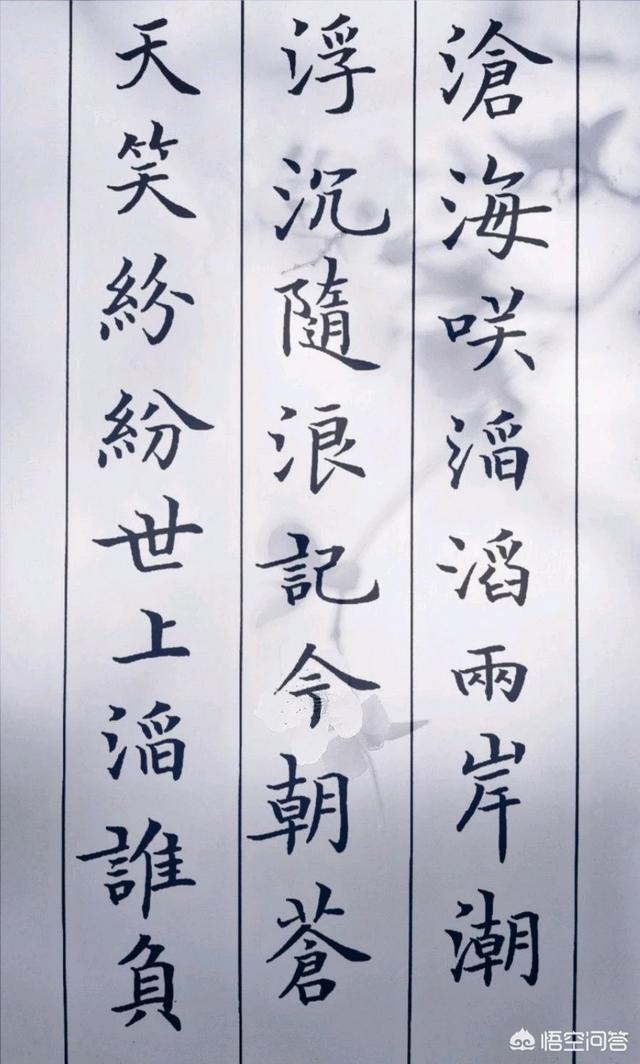 滄海咲滔滔兩岸潮
浮沉隨浪記今朝蒼
天笑紛紛世上滔誰負
悟空问答